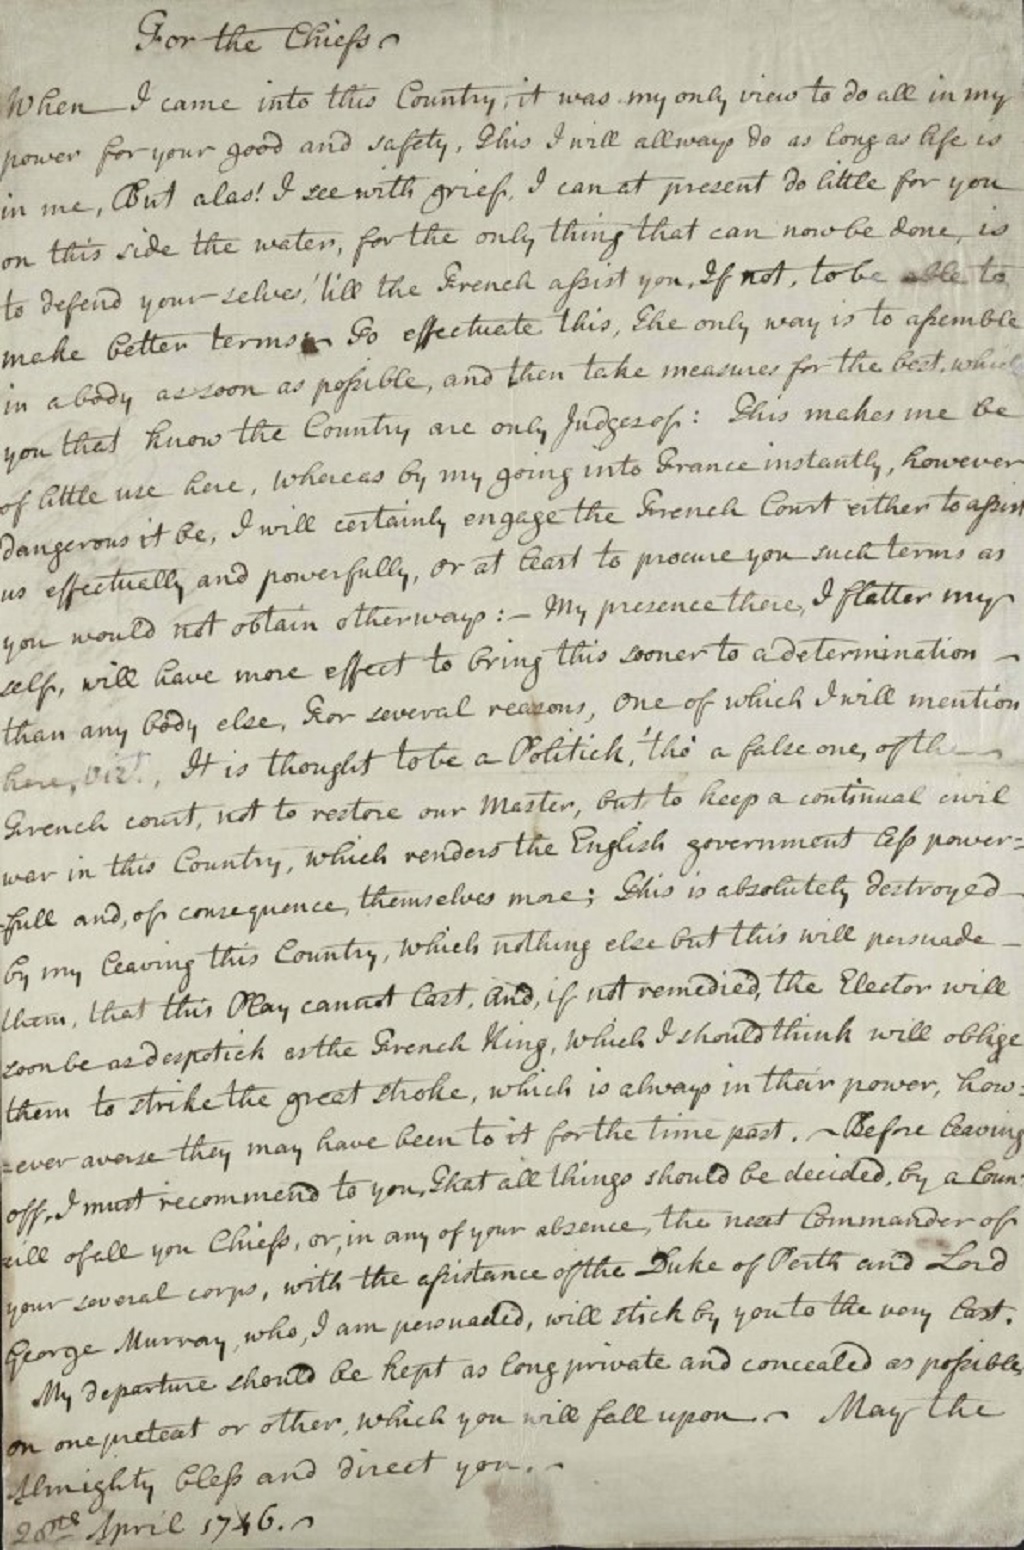 For the Chiefs
When I came into this Country, it was my only view to do all in my
power for your good and safety, This I will allways do as long as life is
in me, But alas! I see with grief, I can at present do little for you
on this side the water, for the only thing that can now be done, is
to defend your-selves, 'till the French assist you, If not, to be able to
make better terms. To effectuate this, The only way is to assemble
in a body as soon as possible, and then take measures for the best, which
you that know the Country are only Judges of: This makes me be
of little use here, Whereas by my going into France instantly, however
dangerous it be, I will certainly engage the French Court either to assist
us effectually and powerfully, or at least to procure you such terms as
you would not obtain otherways:– My presence there, I flatter my
self, will have more effect to bring this sooner to a determination
than any body else, For several reasons, One of which I will mention
here, Vizt., It is thought to be a Politick, 'tho' a false one, of the
French court, not to restore our Master, but to keep a continual civil
war in this Country, which renders the English government less power=
-full and, of consequence, themselves more; This is absolutely destroyed
by my leaving this Country, which nothing else but this will persuade –
them, that this Play cannot last, And, if not remedied, the Elector will
soon be as despotick as the French King, which I should think will oblige
them to strike the great stroke, which is always in their power, how=
=ever averse they may have been to it for the time past. Before leaving
off, I must recommend to you, That all things should be decided, by a Coun-
cill of all you Chiefs, or, in any of your absence, the next Commander of
your several corps, with the assistance of the Duke of Perth and Lord
George Murray, who, I am persuaded, will stick by you to the very last.
My departure should be kept as long private and concealed as possible
on one pretext or other, which you will fall upon. May the
Almighty bless and direct you.
April 1746.